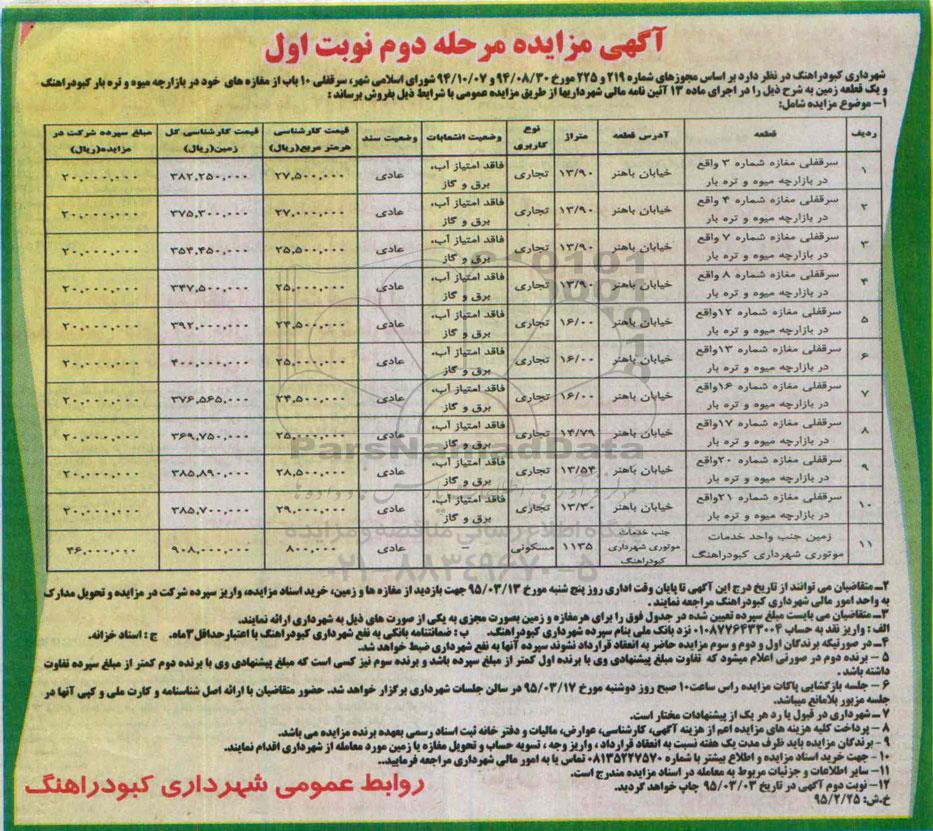 آگهی مزایده مرحله دوم نوبت اول
شهرداری کبودراهنگ در نظر دارد بر اساس مجوزهای شماره ۲۱۹ و ۲۲۵ مورخ ۹۴/۰۸/۳۰ و ۹۴/۱۰/۰۷ شورای اسلامی شهر، سرقفلی ۱۰ باب از مغازه های خود در بازارچه میوه و تره بار کبودراهنگ
و یک قطعه زمین به شرح ذیل را در اجرای ماده ۱۳ آئین نامه مالی شهرداریها از طریق مزایده عمومی با شرایط ذیل بفروش برساند :
۱– موضوع مزایده شامل:
ردیف | قطعه | آدرس قطعه | متراژ | نوع کاربری | وضعیت انشعابات | وضعیت سند | قیمت کارشناسی هرمتر مربع(ریال) | قیمت کارشناسی کل زمین(ریال) | مبلغ سپرده شرکت در مزایده(ریال)
۱ | سرقفلی مغازه شماره ۳ واقع در بازارچه میوه و تره بار | خیابان باهنر | ۱۳/۹۰ | تجاری | فاقد امتیاز آب، برق و گاز | عادی | ۲۷,۵۰۰,۰۰۰ | ۳۸۲,۲۵۰,۰۰۰ | ۲۰,۰۰۰,۰۰۰
۲ | سرقفلی مغازه شماره ۴ واقع در بازارچه میوه و تره بار | خیابان باهنر | ۱۳/۹۰ | تجاری | فاقد امتیاز آب، برق و گاز | عادی | ۲۷,۰۰۰,۰۰۰ | ۳۷۵,۳۰۰,۰۰۰ | ۲۰,۰۰۰,۰۰۰
۳ | سرقفلی مغازه شماره ۷ واقع در بازارچه میوه و تره بار | خیابان باهنر | ۱۳/۹۰ | تجاری | فاقد امتیاز آب، برق و گاز | عادی | ۲۵,۵۰۰,۰۰۰ | ۳۵۴,۴۵۰,۰۰۰ | ۲۰,۰۰۰,۰۰۰
۴ | سرقفلی مغازه شماره ۸ واقع در بازارچه میوه و تره بار | خیابان باهنر | ۱۳/۹۰ | تجاری | فاقد امتیاز آب، برق و گاز | عادی | ۲۵,۰۰۰,۰۰۰ | ۳۴۷,۵۰۰,۰۰۰ | ۲۰,۰۰۰,۰۰۰
۵ | سرقفلی مغازه شماره ۱۲واقع در بازارچه میوه و تره بار | خیابان باهنر | ۱۶/۰۰ | تجاری | فاقد امتیاز آب، برق و گاز | عادی | ۲۴,۵۰۰,۰۰۰ | ۳۹۲,۰۰۰,۰۰۰ | ۲۰,۰۰۰,۰۰۰
۶ | سرقفلی مغازه شماره ۱۳واقع در بازارچه میوه و تره بار | خیابان باهنر | ۱۶/۰۰ | تجاری | فاقد امتیاز آب، برق و گاز | عادی | ۲۵,۰۰۰,۰۰۰ | ۴۰۰,۰۰۰,۰۰۰ | ۲۰,۰۰۰,۰۰۰
۷ | سرقفلی مغازه شماره ۱۶واقع در بازارچه میوه و تره بار | خیابان باهنر | ۱۶/۰۰ | تجاری | فاقد امتیاز آب، برق و گاز | عادی | ۲۴,۵۰۰,۰۰۰ | ۳۷۶,۵۶۵,۰۰۰ | ۲۰,۰۰۰,۰۰۰
۸ | سرقفلی مغازه شماره ۱۷واقع در بازارچه میوه و تره بار | خیابان باهنر | ۱۴/۷۹ | تجاری | فاقد امتیاز آب، برق و گاز | عادی | ۲۵,۰۰۰,۰۰۰ | ۳۶۹,۷۵۰,۰۰۰ | ۲۰,۰۰۰,۰۰۰
۹ | سرقفلی مغازه شماره ۲۰واقع در بازارچه میوه و تره بار | خیابان باهنر | ۱۳/۵۴ | تجاری | فاقد امتیاز آب، برق و گاز | عادی | ۲۸,۵۰۰,۰۰۰ | ۳۸۵,۸۹۰,۰۰۰ | ۲۰,۰۰۰,۰۰۰
۱۰ | سرقفلی مغازه شماره ۲۱واقع در بازارچه میوه و تره بار | خیابان باهنر | ۱۳/۳۰ | تجاری | فاقد امتیاز آب، برق و گاز | عادی | ۲۹,۰۰۰,۰۰۰ | ۳۸۵,۷۰۰,۰۰۰ | ۲۰,۰۰۰,۰۰۰
۱۱ | زمین جنب واحد خدمات موتوری شهرداری کبودراهنگ | جنب خدمات موتوری شهرداری کبودراهنگ | ۱۱۳۵ | مسکونی | – | عادی | ۸۰۰,۰۰۰ | ۹۰۸,۰۰۰,۰۰۰ | ۴۶,۰۰۰,۰۰۰
۲– متقاضیان می توانند از تاریخ درج این آگهی تا پایان وقت اداری روز پنج شنبه مورخ ۹۵/۰۳/۱۳ جهت بازدید از مغازه ها و زمین، خرید اسناد مزایده، واریز سپرده شرکت در مزایده و تحویل مدارک
به واحد امور مالی شهرداری کبودراهنگ مراجعه نمایند .
۳– متقاضیان می بایست مبلغ سپرده تعیین شده در جدول فوق را برای هرمغازه و زمین بصورت مجزی به یکی از صورت های ذیل به شهرداری ارائه نمایند.
الف : واریز نقد به حساب ۰۱۰۸۷۷۶۴۳۳۰۰۴ نزد بانک ملی بنام سپرده شهرداری کبودراهنگ. ب : ضمانتنامه بانکی به نفع شهرداری کبودراهنگ با اعتبارحداقل۳ماه. ج : اسناد خزانه.
۴– در صورتیکه برندگان اول و دوم و سوم مزایده حاضر به انعقاد قرارداد نشوند سپرده آنها به نفع شهرداری ضبط خواهد شد.
۵ – برنده دوم در صورتی اعلام میشود که تفاوت مبلغ پیشنهادی وی با برنده اول کمتر از مبلغ سپرده باشد و برنده سوم نیز کسی است که مبلغ پیشنهادی وی با برنده دوم کمتر از مبلغ سپرده تفاوت
داشته باشد .
۶ – جلسه بازگشایی پاکات مزایده راس ساعت۱۰ صبح روز دوشنبه مورخ ۹۵/۰۳/۱۷ در سالن جلسات شهرداری برگزار خواهد شد. حضور متقاضیان با ارائه اصل شناسنامه و کارت ملی و کپی آنها در
جلسه مزبور بلامانع میباشد.
۷ – شهرداری در قبول یا رد هر یک از پیشنهادات مختار است.
۸ – پرداخت کلیه هزینه های مزایده اعم از هزینه آگهی، کارشناسی، عوارض، مالیات و دفتر خانه ثبت اسناد رسمی بعهده برنده مزایده می باشد.
۹ - برندگان مزایده باید ظرف مدت یک هفته نسبت به انعقاد قرارداد ، واریز وجه ، تسویه حساب و تحویل مغازه یا زمین مورد معامله از شهرداری اقدام نمایند.
۱۰ - جهت خرید اسناد مزایده و اطلاع بیشتر با شماره ۰۸۱۳۵۲۲۷۵۷۰ تماس یا به امور مالی شهرداری مراجعه فرمایید..
۱۱– سایر اطلاعات و جزئیات مربوط به معامله در اسناد مزایده مندرج است.
۱۲– نوبت دوم آگهی در تاریخ ۹۵/۰۳/۰۳ چاپ خواهد گردید.
خ.ش: ۹۵/۲/۲۵
روابط عمومی شهرداری کبودراهنگ
ParsNamadData
پایگاه اطلاع رسانی مناقصه و مزایده
۰۲۱-۸۸۳۴۹۶۷۰-۵